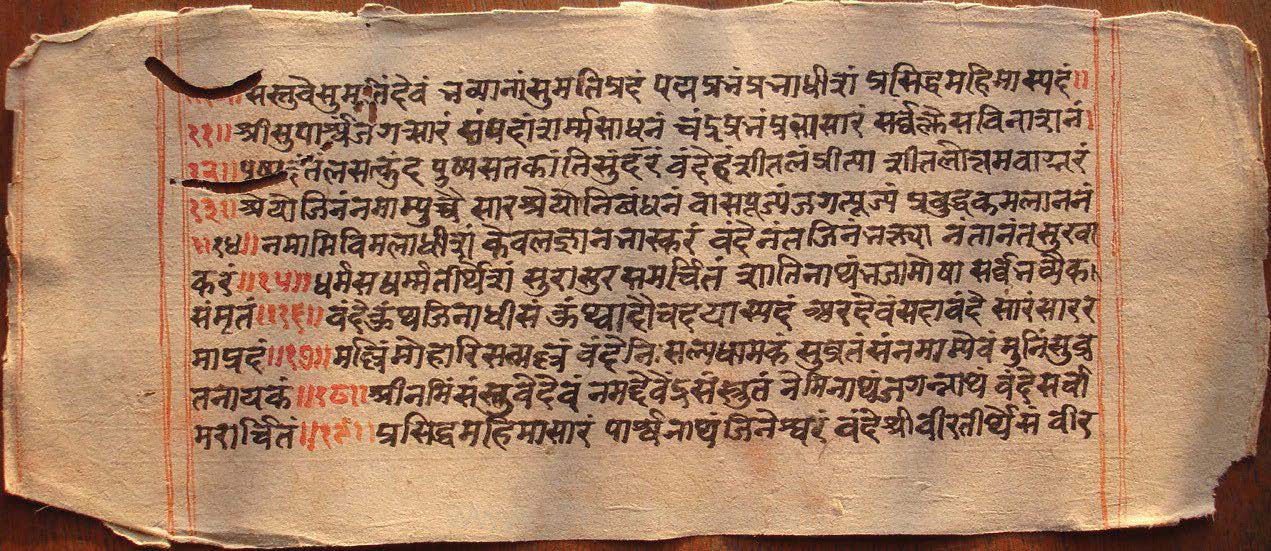 संस्तुवे सुमतिं देवं भव्यानां सुमतिप्रदं पद्मप्रभं प्रभाधीशं प्रसिद्धमहिमास्पदं॥
११॥ श्रीसुपार्श्वं जगत्सारं संपदांशर्म्मसाधनं चंद्रप्रभं प्रभासारं सर्व्वक्लैसविनाशनं।
१२॥ पुष्पदंतं लसत्कुंद पुष्पसतकांति सुंदरं वंदेहं शीतलं प्रीत्या शीतलौ
१३॥ श्रेयोजिनं नमाम्युच्चै सारश्रेयोनिबंधनं वासपूज्यं जगत्पूज्यं प्रबुद्धकमलाननं
॥१४॥ नमामि विमलाधीशं केवलज्ञानभास्करं वंदेनंतजिनं भक्त्या नंतानंतसुखा
करं॥१५॥ धर्मं सधर्म्मतीर्थेशं सुरासुरसमर्चितं शातिनाथं सर्व्वभव्यैक।
संमृतं॥१६॥ वंदे कुंथुजिनाधीसं अरदेवंसदावंदे सारंसारर
माप्रदं॥१७॥ मल्लिं मोहारिसत्मल्लं वंदे निःसल्यधामकं सुव्रतं संनमाम्येवं मुनिंसुव्र
तनायकं॥१८॥ श्रीनमिं संस्तुवे देवं नमद्देवेंद्रसंस्तुतं नेमिनाथं जगन्नाथं वंदे सर्वो
मरार्चितं॥१९॥ प्रसिद्धमहिमासारं पार्श्वनाथं जिनेश्वरं वंदे श्रीवीरतीर्थेसं वीर